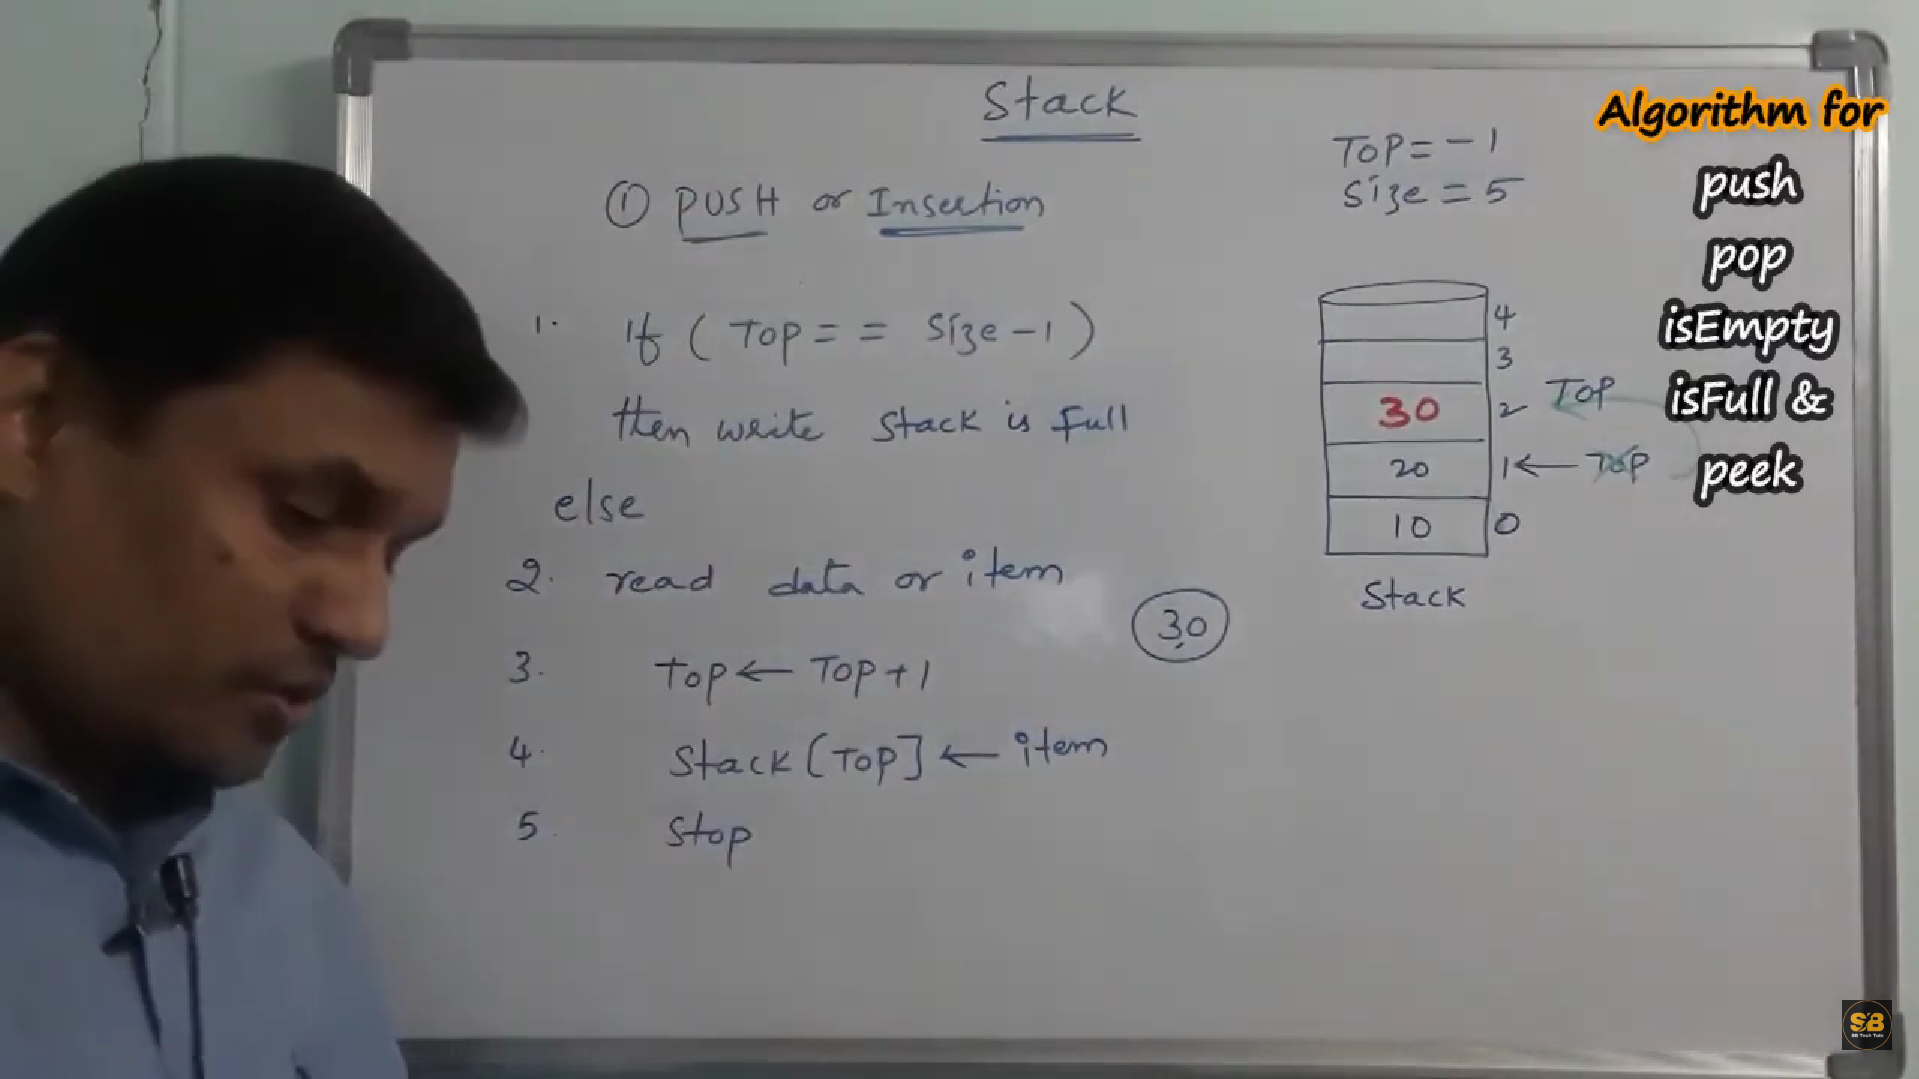 Stack
① PUSH or Insertion
1. If ( Top == Size-1 )
then write Stack is Full
else
2. read data or item
3. Top ← Top+1
4. Stack [Top] ← item
5. Stop
30
Top = -1
Size = 5
4
3
30 2 Top
20 1 ← Top
10 0
Stack
Algorithm for
push
pop
isEmpty
isFull &
peek
SB
SB Tech Tuts